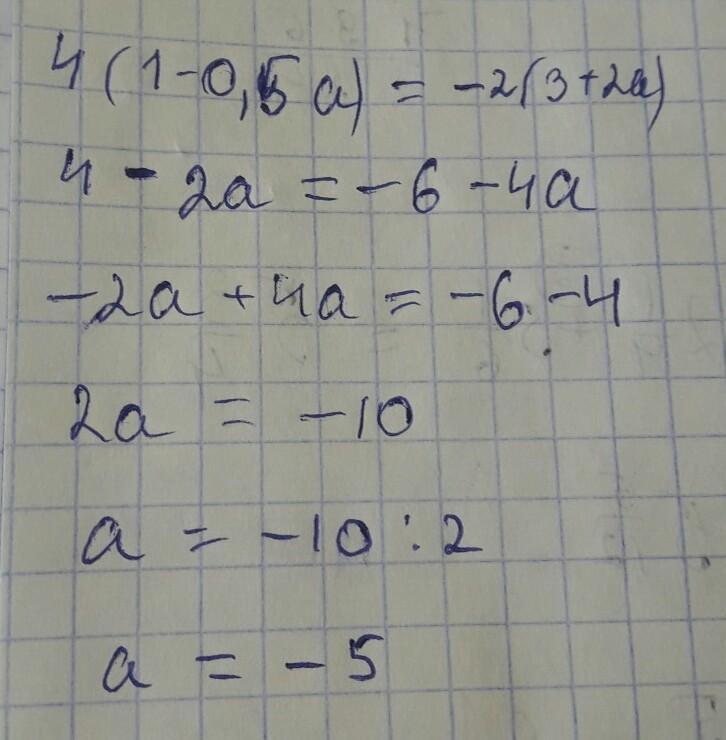 4(1-0,5a) = -2(3+2a)
4 - 2a = -6 -4a
-2a +4a = -6 -4
2a = -10
a = -10 : 2
a = -5